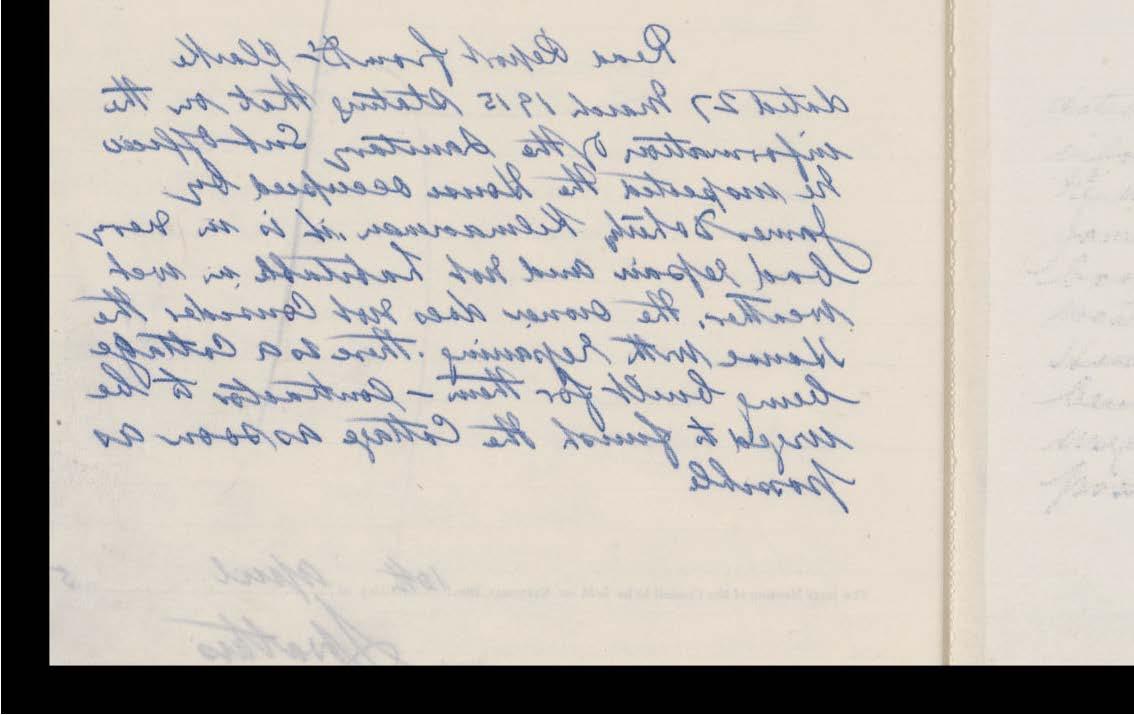 Read Report from Dr Clarke
dated 27 March 1915 stating that on the
information of the Sanitary Sub Officer
he inspected the House occupied by
James Doherty it is in very
bad repair and not habitable in wet
weather, the owner does not Consider the
House worth repairing. There is a Cottage
being built for them – Contractor to be
urged to finish the Cottage as soon as
possible
The next Meeting of the Council to be held on Saturday, the 10th April 5